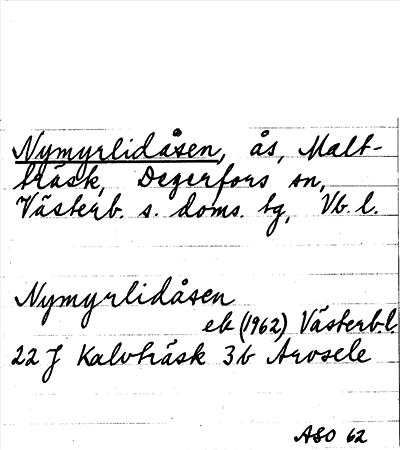 Nymyrlidåsen, ås, Malt-
träsk, Degerfors sn,
Västerb. s. doms. tg, Vb. l.
Nymyrlidåsen
ek (1962) Västerb.l.
22 J Kalvträsk 3b Arvsele
ASO 62